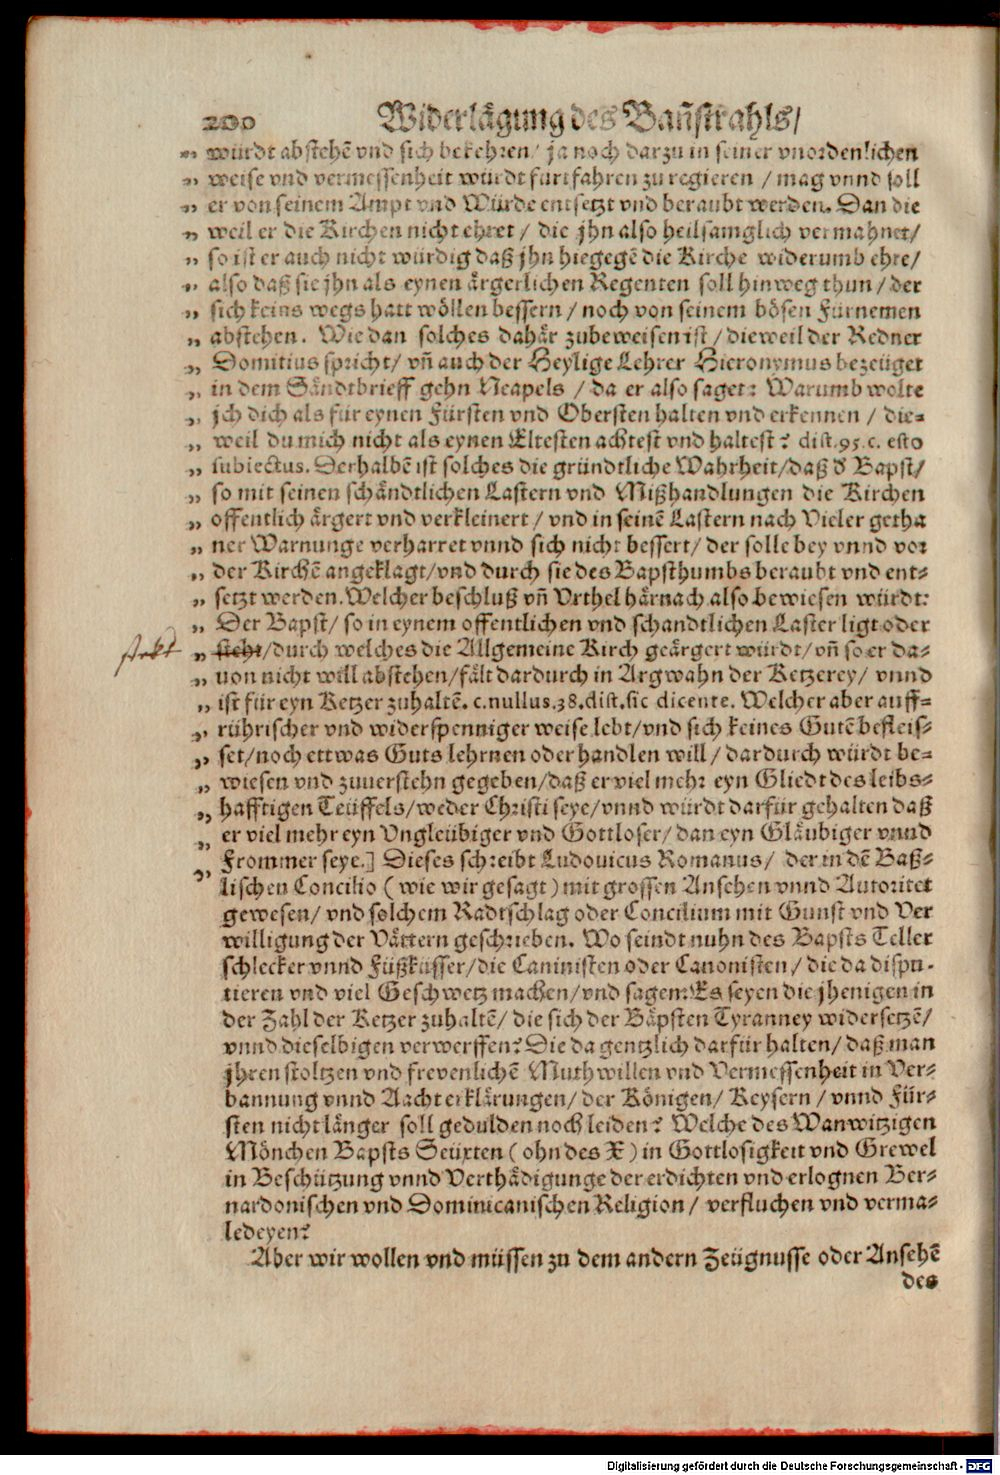 200 Widerlågung des Bañstrahls/
„ würdt abstehē vnd sich bekehren / ja noch darzu in seiner vnordenlichen
„ weise vnd vermessenheit würdt furtfahren zu regieren / mag vnnd soll
„ er von seinem Ampt vnd Würde entsetzt vnd beraubt werden. Dan die
„ weil er die Kirchen nicht ehret / die jhn also heilsamglich vermahnet/
„ so ist er auch nicht würdig daß jhn hiegegē die Kirche widerumb ehre/
„ also daß sie jhn als eynen årgerlichen Regenten soll hinweg thun / der
„ sich keins wegs hatt wöllen bessern / noch von seinem bösen Fürnemen
„ abstehen. Wie dan solches dahår zubeweisen ist / dieweil der Redner
„ Domitius spricht/ vñ auch der Heylige Lehrer Hieronymus bezeüget
„ in dem Såndtbrieff gehn Neapels / da er also saget: Warumb wolte
„ jch dich als für eynen Fürsten vnd Obersten halten vnd erkennen / die=
„ weil du mich nicht als eynen Eltesten achtest vnd haltest? dist.95.c. esto
„ subiectus. Derhalbē ist solches die gründtliche Wahrheit/daß d' Bapst/
„ so mit seinen schåndtlichen Lastern vnd Mißhandlungen die Kirchen
„ offentlich årgert vnd verkleinert / vnd in seinē Lastern nach Vieler getha
„ ner Warnunge verharret vnnd sich nicht bessert/ der solle bey vnnd vor
„ der Kirchē angeklagt/vnd durch sie des Bapsthumbs beraubt vnd ent=
„ setzt werden. Welcher beschluß vñ Vrthel hårnach also bewiesen würdt:
„ Der Bapst/ so in eynem offentlichen vnd schandtlichen Laster ligt oder
stekt „ steht/durch welches die Allgemeine Kirch geårgert würdt/ vñ so er da=
„ uon nicht will abstehen/fålt dardurch in Argwahn der Ketzerey/ vnnd
„ ist für eyn Ketzer zuhaltē. c.nullus.38.dist.sic dicente. Welcher aber auff=
„ rührischer vnd widerspenniger weise lebt/vnd sich keines Gutē befleis=
„ set/noch ettwas Guts lehrnen oder handlen will / dardurch würdt be=
„ wiesen vnd zuuerstehn gegeben/daß er viel mehr eyn Gliedt des leibs=
„ hafftigen Teüffels/weder Christi seye/vnnd würdt darfür gehalten daß
„ er viel mehr eyn Vngleübiger vnd Gottloser/ dan eyn Glåubiger vnnd
„ Frommer seye.] Dieses schreibt Ludouicus Romanus/ der in dē Baß=
lischen Concilio ( wie wir gesagt ) mit grossen Ansehen vnnd Autoritet
gewesen/ vnd solchem Radtschlag oder Concilium mit Gunst vnd Ver
willigung der Våttern geschrieben. Wo seindt nuhn des Bapsts Teller
schlecker vnnd Füßküsser/die Caninisten oder Canonisten / die da dispu=
tieren vnd viel Geschwetz machen/vnd sagen: Es seyen die jhenigen in
der Zahl der Ketzer zuhaltē/ die sich der Båpsten Tyranney widersetzē/
vnnd dieselbigen verwerffen? Die da gentzlich darfür halten/ daß man
jhren stoltzen vnd frevenlichē Muthwillen vnd Vermessenheit in Ver=
bannung vnnd Aachterklårungen/ der Königen/ Keysern / vnnd Für=
sten nicht långer soll gedulden noch leiden? Welche des Wanwitzigen
Mönchen Bapsts Seüxten ( ohn des X ) in Gottlosigkeit vnd Grewel
in Beschützung vnnd Verthådigunge der erdichten vnd erlognen Ber=
nardonischen vnd Dominicanischen Religion / verfluchen vnd verma=
ledeyen?
Aber wir wollen vnd müssen zu dem andern Zeügnusse oder Ansehē
des
Digitalisierung gefördert durch die Deutsche Forschungsgemeinschaft - DFG